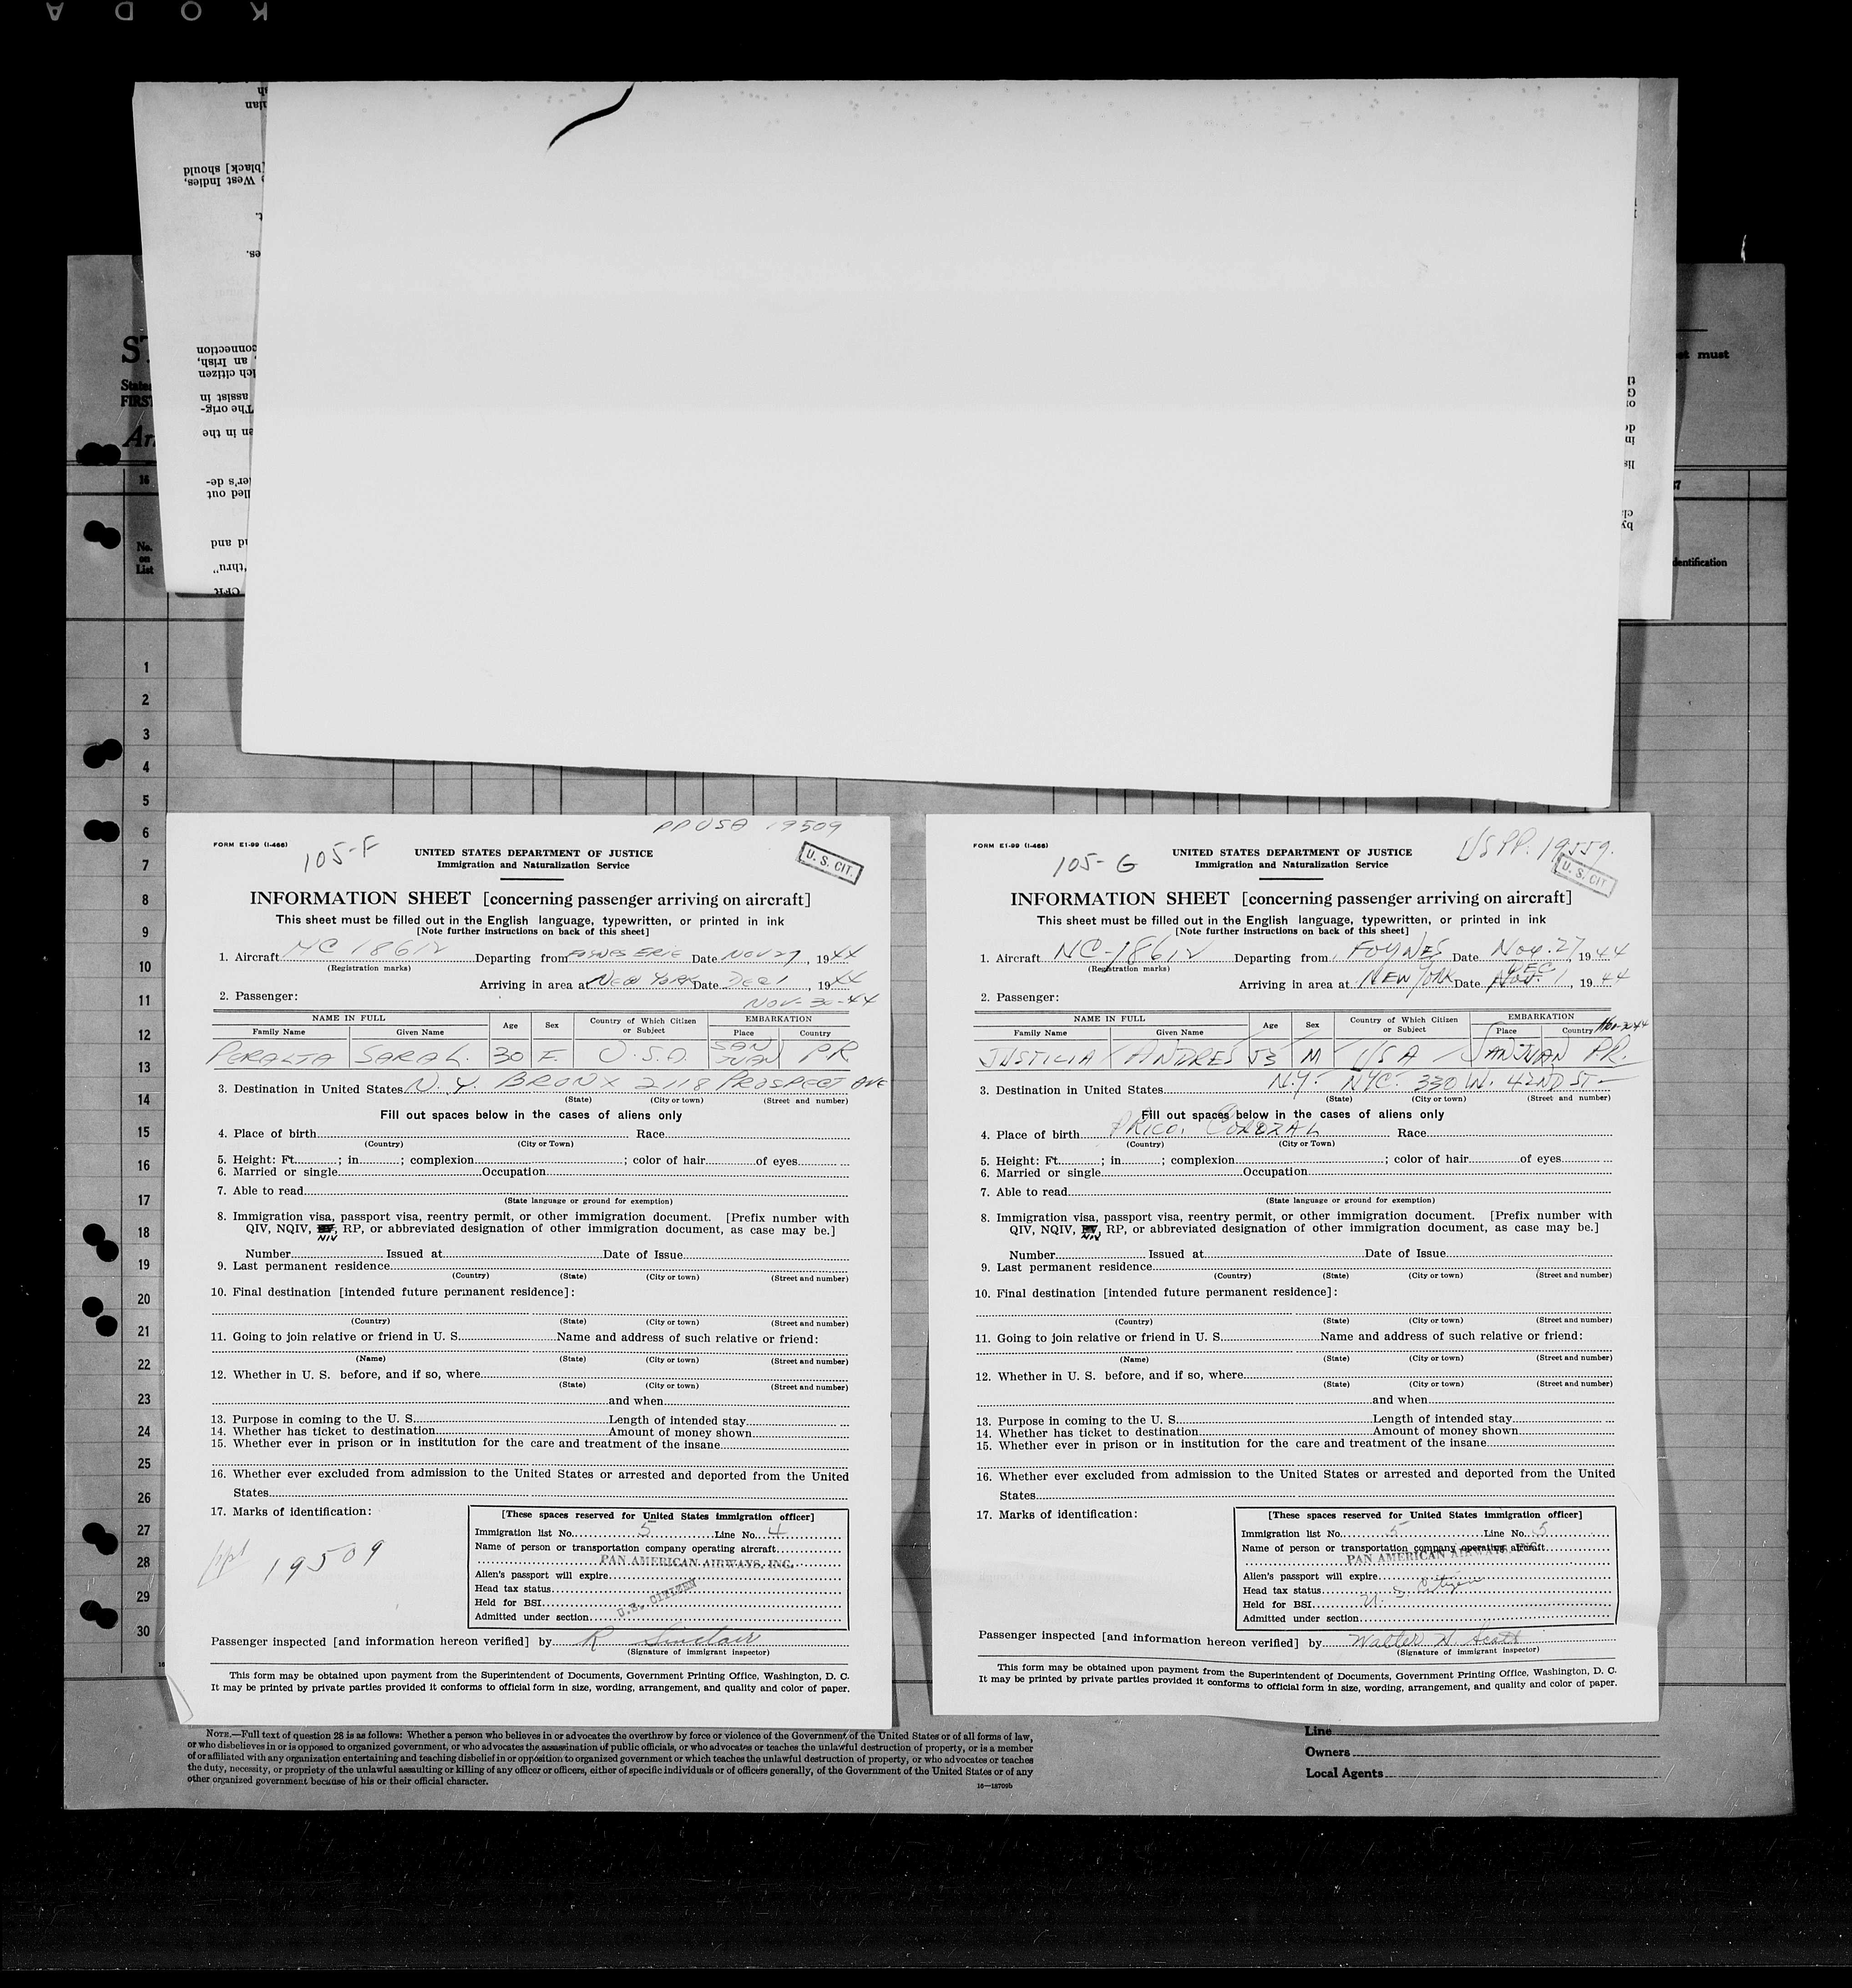 KODA
black] should
West Indies,
connection
an Irish,
citizen
assist in
The orig-
in the
er's de-
led out
and
thru"
CFR
must
identification
No.
on
List
1
2
3
4
5
6
7
8
9
10
11
12
13
14
15
16
17
18
19
20
21
22
23
24
25
26
27
28
29
30
PPUSA 19509
FORM E1-99 (1-466)
105-F
UNITED STATES DEPARTMENT OF JUSTICE
Immigration and Naturalization Service
U. S. CIT.
INFORMATION SHEET [concerning passenger arriving on aircraft]
This sheet must be filled out in the English language, typewritten, or printed in ink
[Note further instructions on back of this sheet]
1. Aircraft NC 18612 Departing from FOYNES EIRE Date NOV 27, 1944
(Registration marks)
Arriving in area at NEW YORK Date DEC 1, 1944
2. Passenger: NOV-30-44
NAME IN FULL Age Sex Country of Which Citizen or Subject EMBARKATION
Family Name Given Name Place Country
PERALTA SARA L. 30 F. U.S.A. SAN JUAN PR
3. Destination in United States N.Y. BRONX 2118 PROSPECT AVE
(State) (City or town) (Street and number)
Fill out spaces below in the cases of aliens only
4. Place of birth Race
(Country) (City or Town)
5. Height: Ft. ; in. ; complexion ; color of hair of eyes
6. Married or single Occupation
7. Able to read
(State language or ground for exemption)
8. Immigration visa, passport visa, reentry permit, or other immigration document. [Prefix number with
QIV, NQIV, NIV, RP, or abbreviated designation of other immigration document, as case may be.]
Number Issued at Date of Issue
9. Last permanent residence
(Country) (State) (City or town) (Street and number)
10. Final destination [intended future permanent residence]:
(Country) (State) (City or town) (Street and number)
11. Going to join relative or friend in U. S. Name and address of such relative or friend:
(Name) (State) (City or town) (Street and number)
12. Whether in U. S. before, and if so, where
(State) (City or town) (Street and number)
and when
13. Purpose in coming to the U. S. Length of intended stay
14. Whether has ticket to destination Amount of money shown
15. Whether ever in prison or in institution for the care and treatment of the insane
16. Whether ever excluded from admission to the United States or arrested and deported from the United
States
17. Marks of identification:
ppt 19509
[These spaces reserved for United States immigration officer]
Immigration list No. 5 Line No. 4
Name of person or transportation company operating aircraft
PAN AMERICAN AIRWAYS, INC.
Alien's passport will expire
Head tax status
Held for BSI U.S. CITIZEN
Admitted under section
Passenger inspected [and information hereon verified] by R Sinclair
(Signature of immigrant inspector)
This form may be obtained upon payment from the Superintendent of Documents, Government Printing Office, Washington, D. C.
It may be printed by private parties provided it conforms to official form in size, wording, arrangement, and quality and color of paper.
FORM E1-99 (1-466)
105-G
UNITED STATES DEPARTMENT OF JUSTICE
Immigration and Naturalization Service
US PP. 19559.
U. S. CIT
INFORMATION SHEET [concerning passenger arriving on aircraft]
This sheet must be filled out in the English language, typewritten, or printed in ink
[Note further instructions on back of this sheet]
1. Aircraft NC-18612 Departing from FOYNES Date Nov. 27, 1944
(Registration marks)
Arriving in area at NEW YORK Date DEC 1, 1944
2. Passenger:
NAME IN FULL Age Sex Country of Which Citizen or Subject EMBARKATION
Family Name Given Name Place Country Nov-30-44
JUSTICIA ANDRES 53 M USA SAN JUAN P.R.
3. Destination in United States N.Y. NYC. 330 W. 42ND ST
(State) (City or town) (Street and number)
Fill out spaces below in the cases of aliens only
4. Place of birth P RICO. COROZAL Race
(Country) (City or Town)
5. Height: Ft. ; in. ; complexion ; color of hair of eyes
6. Married or single Occupation
7. Able to read
(State language or ground for exemption)
8. Immigration visa, passport visa, reentry permit, or other immigration document. [Prefix number with
QIV, NQIV, NIV, RP, or abbreviated designation of other immigration document, as case may be.]
Number Issued at Date of Issue
9. Last permanent residence
(Country) (State) (City or town) (Street and number)
10. Final destination [intended future permanent residence]:
(Country) (State) (City or town) (Street and number)
11. Going to join relative or friend in U. S. Name and address of such relative or friend:
(Name) (State) (City or town) (Street and number)
12. Whether in U. S. before, and if so, where
(State) (City or town) (Street and number)
and when
13. Purpose in coming to the U. S. Length of intended stay
14. Whether has ticket to destination Amount of money shown
15. Whether ever in prison or in institution for the care and treatment of the insane
16. Whether ever excluded from admission to the United States or arrested and deported from the United
States
17. Marks of identification:
[These spaces reserved for United States immigration officer]
Immigration list No. 5 Line No. 5
Name of person or transportation company operating aircraft
PAN AMERICAN AIRWAYS, INC.
Alien's passport will expire
Head tax status
Held for BSI U. S. Citizen
Admitted under section
Passenger inspected [and information hereon verified] by Walter H. Scott
(Signature of immigrant inspector)
This form may be obtained upon payment from the Superintendent of Documents, Government Printing Office, Washington, D. C.
It may be printed by private parties provided it conforms to official form in size, wording, arrangement, and quality and color of paper.
NOTE.—Full text of question 28 is as follows: Whether a person who believes in or advocates the overthrow by force or violence of the Government of the United States or of all forms of law,
or who disbelieves in or is opposed to organized government, or who advocates the assassination of public officials, or who advocates or teaches the unlawful destruction of property, or is a member
of or affiliated with any organization entertaining and teaching disbelief in or opposition to organized government or which teaches the unlawful destruction of property, or who advocates or teaches
the duty, necessity, or propriety of the unlawful assaulting or killing of any officer or officers, either of specific individuals or of officers generally, of the Government of the United States or of any
other organized government because of his or their official character.
16—18709b
Line
Owners
Local Agents